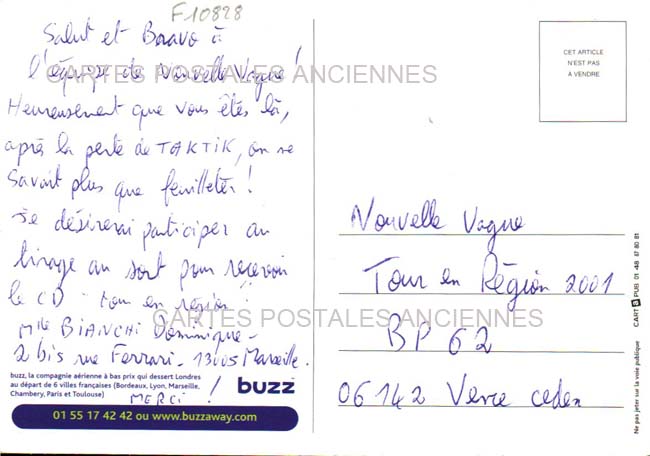 F10828
Salut et Bravo à
l'équipe de Nouvelle Vague !
CARTES POSTALES ANCIENNES
Heureusement que vous êtes là,
après la perte de TAKTIK, on ne
savait plus que feuilleter !
Je désirerai participer au
tirage au sort pour recevoir
le CD "tour en région" !
CARTES POSTALES ANCIENNES
Mlle BIANCHI Dominique -
2 bis rue Ferrari - 13005 Marseille.
MERCI !
buzz, la compagnie aérienne à bas prix qui dessert Londres
au départ de 6 villes françaises (Bordeaux, Lyon, Marseille,
Chambery, Paris et Toulouse)
buzz
01 55 17 42 42 ou www.buzzaway.com
CET ARTICLE
N'EST PAS
A VENDRE
Nouvelle Vague
Tour en Région 2001
BP 62
06142 Vence cedex
CART PUB 01 48 87 80 81
Ne pas jeter sur la voie publique